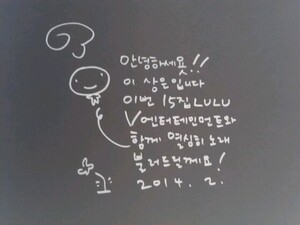 안녕하세요!!
이상은입니다
이번 15집 LULU
V엔터테인먼트와
함께 열심히 노래
불러드릴께요!
2014. 2.